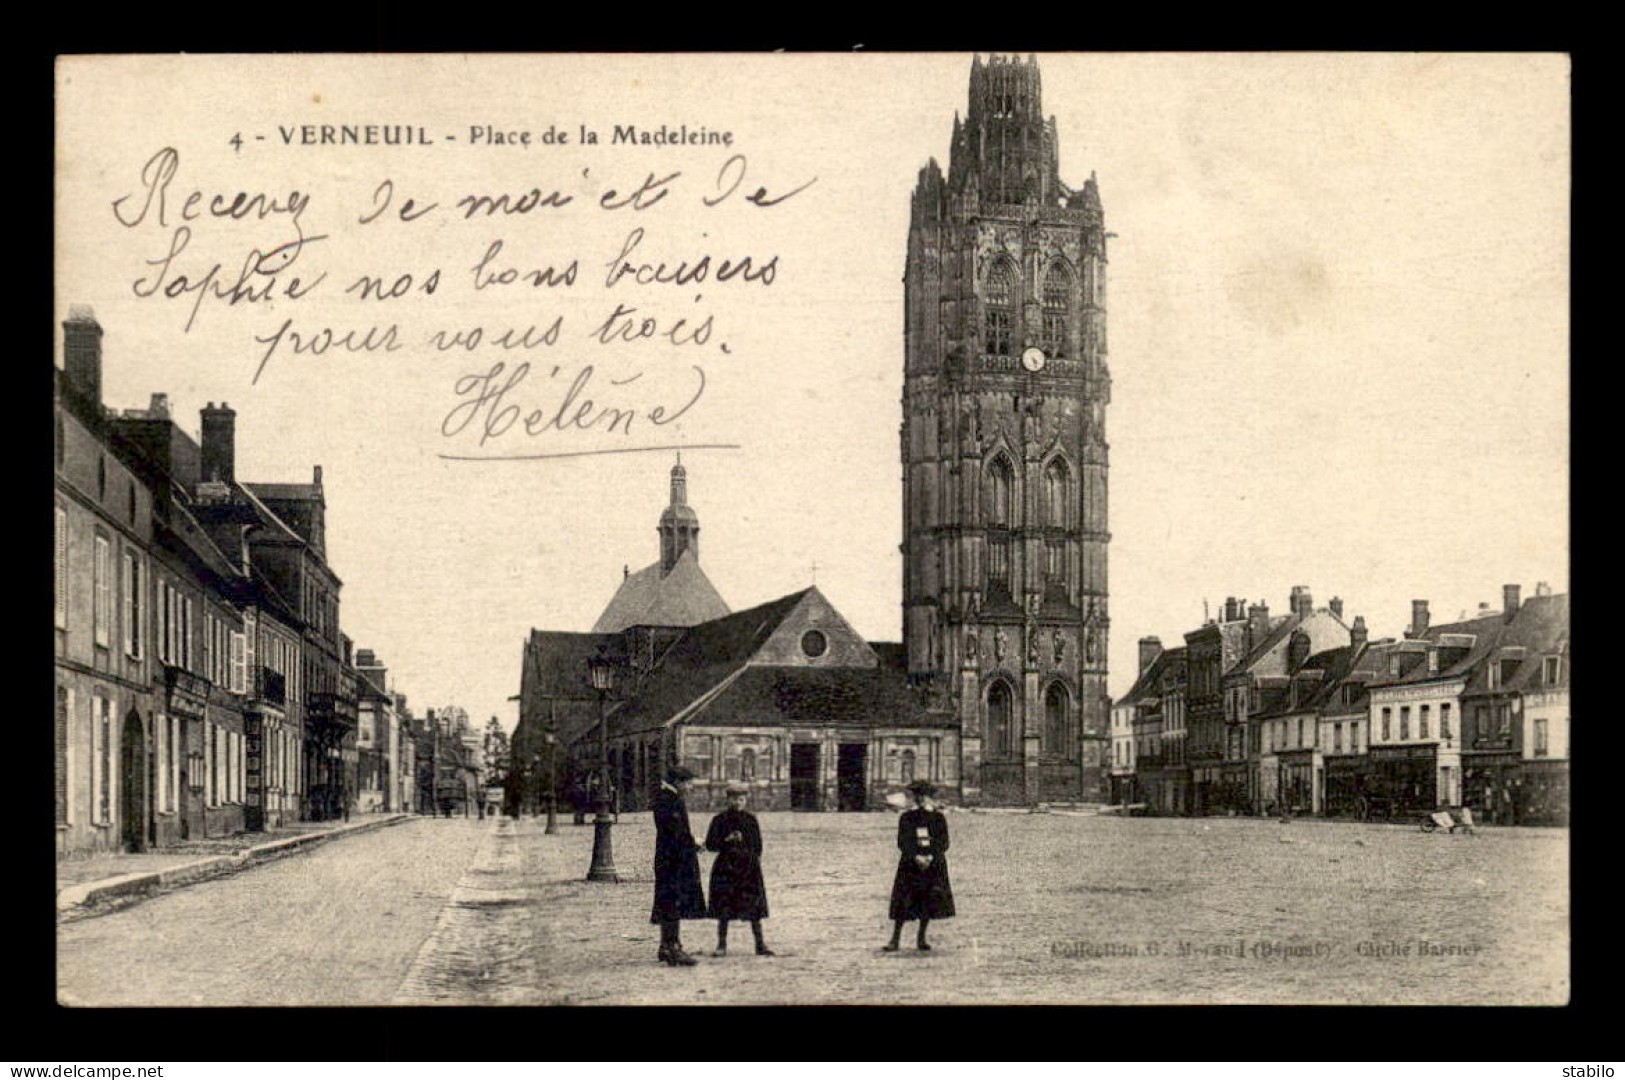 4 - VERNEUIL - Place de la Madeleine
Recevez de moi et de
Sophie nos bons baisers
pour vous trois.
Hélène
Collection G. Morand (Dépost) - Cliché Barrier
delcampe.net
stabilo